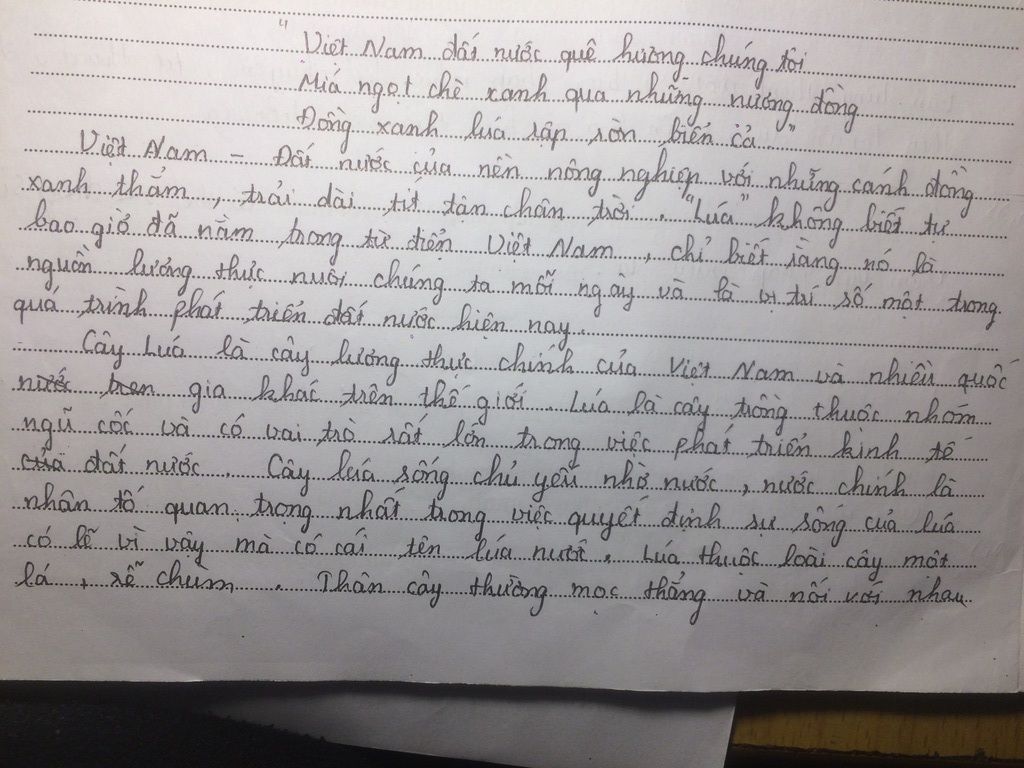 "Việt Nam đất nước quê hương chúng tôi
Miá ngọt chè xanh qua những nương đồng
Đồng xanh lúa rập rờn biển cả"
Việt Nam - Đất nước của nền nông nghiệp với những cánh đồng
xanh thẳm, trải dài tít tận chân trời. "Lúa" không biết tự
bao giờ đã nằm trong từ điển Việt Nam, chỉ biết rằng nó là
nguồn lương thực nuôi chúng ta mỗi ngày và là vị trí số một trong
quá trình phát triển đất nước hiện nay.
Cây Lúa là cây lương thực chính của Việt Nam và nhiều quốc
gia khác trên thế giới. Lúa là cây trồng thuộc nhóm
ngũ cốc và có vai trò rất lớn trong việc phát triển kinh tế
của đất nước. Cây lúa sống chủ yếu nhờ nước, nước chính là
nhân tố quan trọng nhất trong việc quyết định sự sống của lúa
có lẽ vì vậy mà có cái tên lúa nước. Lúa thuộc loài cây một
lá, rễ chùm. Thân cây thường mọc thẳng và nối với nhau